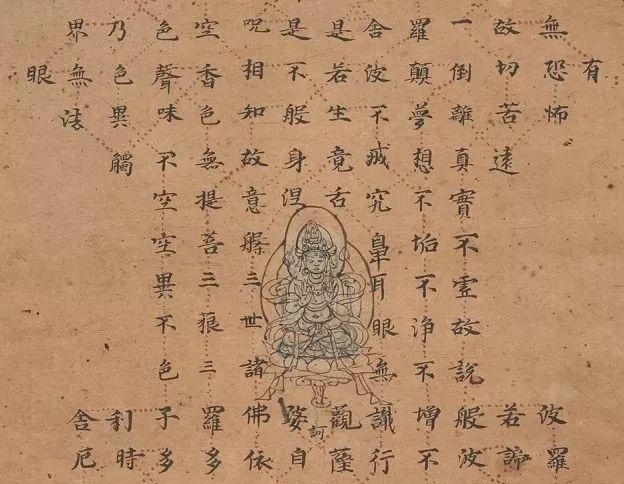 有
無恐怖波羅
故切苦遠若諦
一倒離真實不虛故說般波
羅顛夢想不垢不淨不增不
舍波不滅究鼻耳眼無識行
是若生竟舌觀薩
訶
是不般身涅婆自
呪相知故意槃三世諸佛依
空香色無提菩三藐三羅多
色聲味不空空異不色子多
乃色異觸利時
界無法舍厄
眼